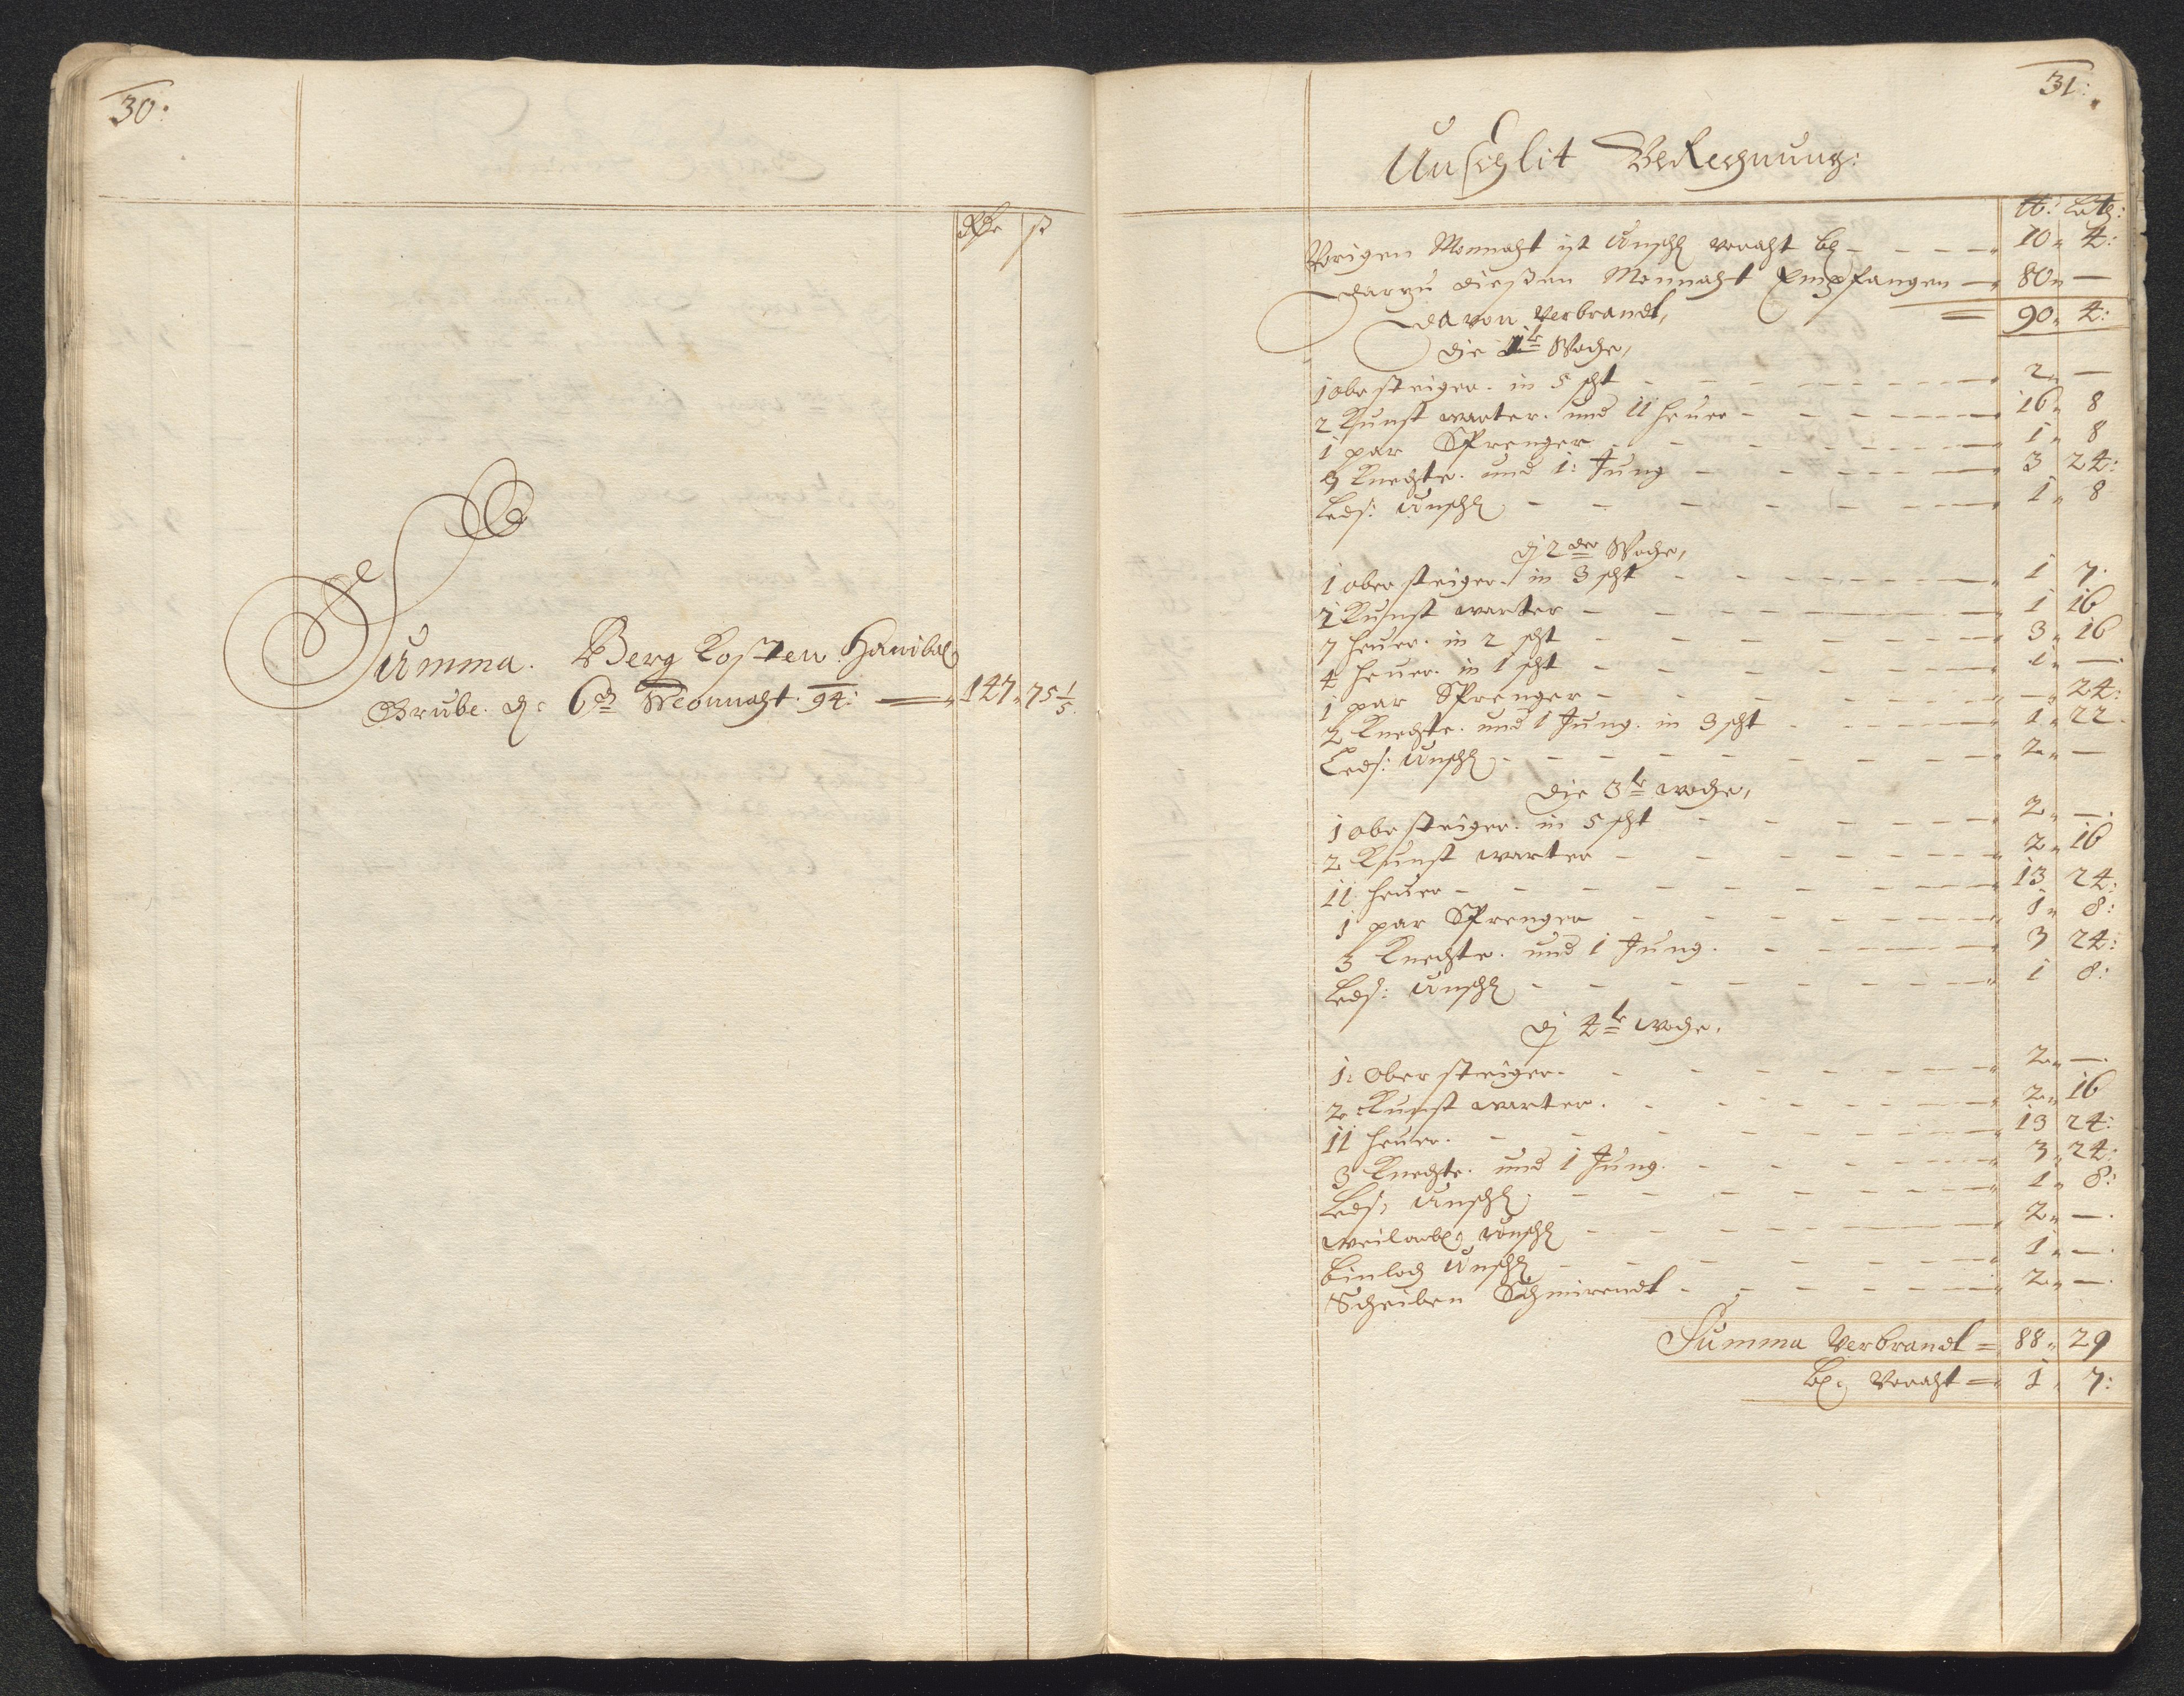 30:
Summa. Berg Kosten Hanibal
Grube. d: 6th Monnaht. 94: 147 75 1/5
31:
Unschlit BeRechnung:
tt: Loth:
Vorigen Monnaht ist Unschl voraht bl 10 4:
darzu dießen Monnaht Empfangen 80 —
90 4:
davon verbrandt,
die 1te Woche,
1 obrsteiger. in 5 scht 2 —
2 Kunst warter. und 11 heuer 16 8
1 par Sprenger 1 8
3 Knechte. und 1: Jung 3 24:
Leds: Unschl 1 8
dj 2der Woche,
1 obersteiger. in 3 scht 1 7.
2 Kunst warter 1 16
7 heuer. in 2 scht 3 16
4 heuer. in 1 scht 1 —
1 par Sprenger — 24:
2 Knechte. und 1 Jung. in 3 scht 1 22
Leds: Unschl 2 —
die 3te woche,
1 obrsteiger. in 5 scht 2 —
2 Kunst warter 2 16
11 heuer 13 24:
1 par Sprenger 1 8:
3 Knechte. und 1 Jung. 3 24:
Leds: Unschl 1 8:
dj 4te woche.
1: Obersteiger. 2 —
2 Kunst warter. 2 16
11 heuer. 13 24:
3 Knechte. und 1 Jung. 3 24:
Leds: Unschl 1 8:
weilarb: Unschl 2 —
Unschl 1 —
Scheiben Schmirendt 2 —
Summa verbrandt = 88 29
bl: Voraht = 1 7: